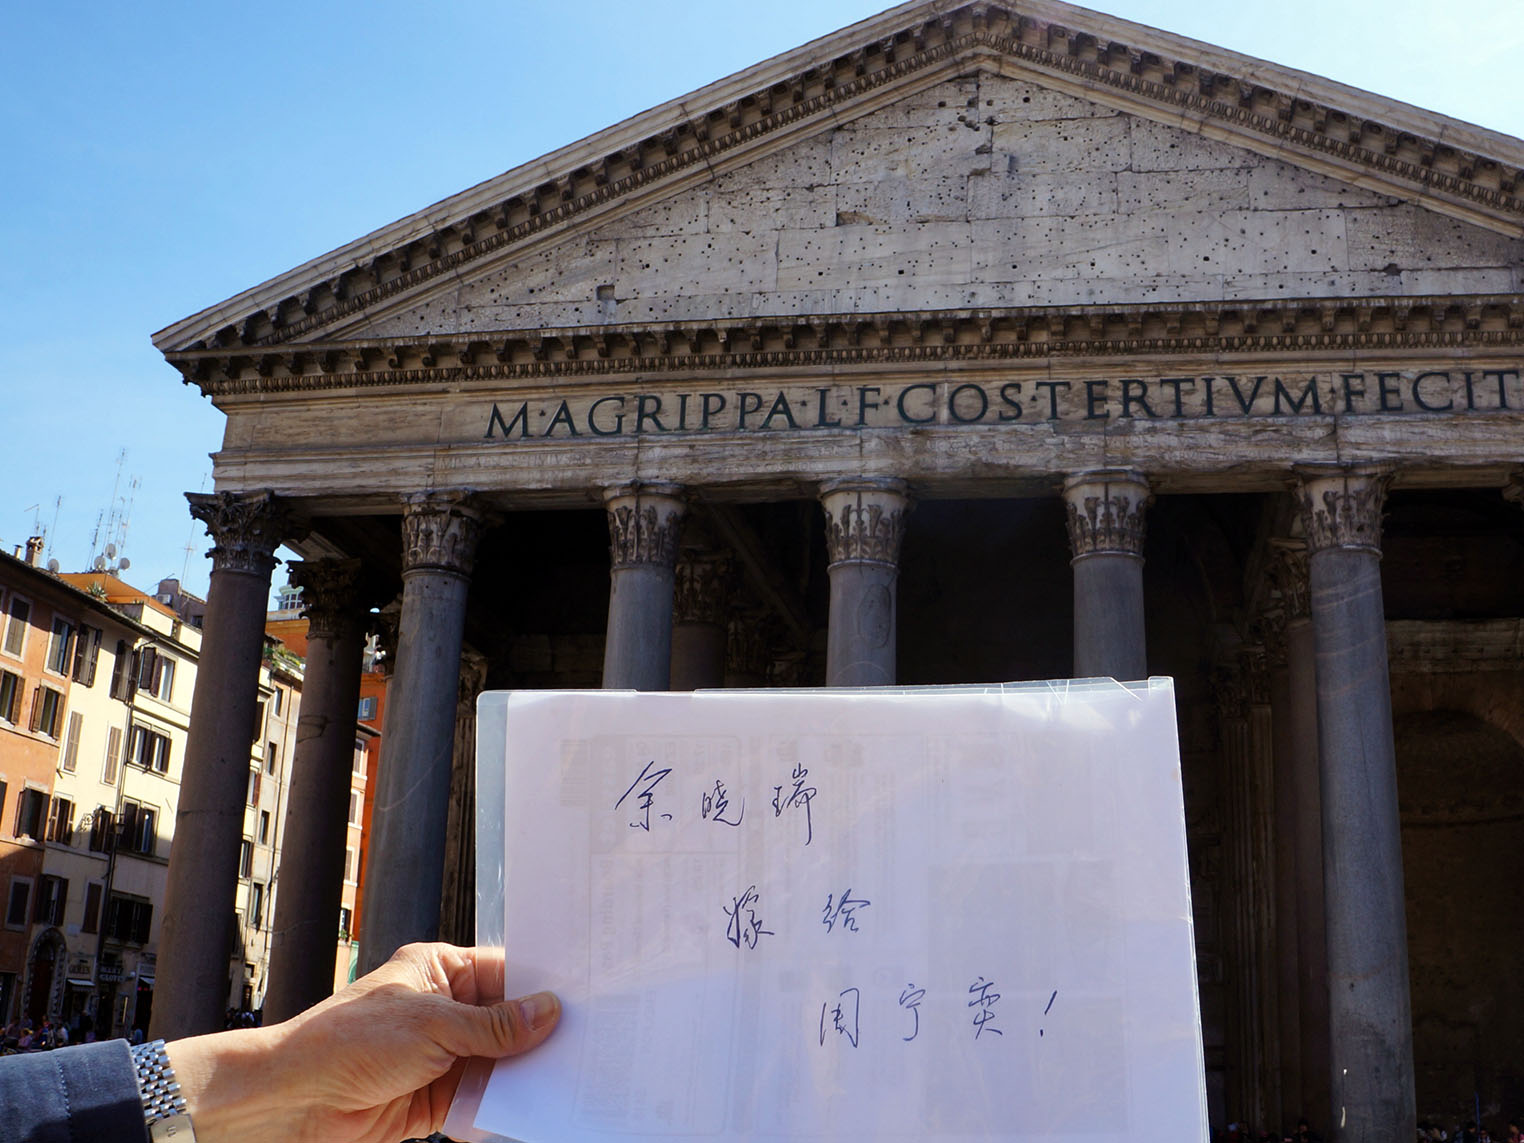 M·AGRIPPA·L·F·COS·TERTIVM·FECIT
余晓瑞
嫁给
周宁奕！